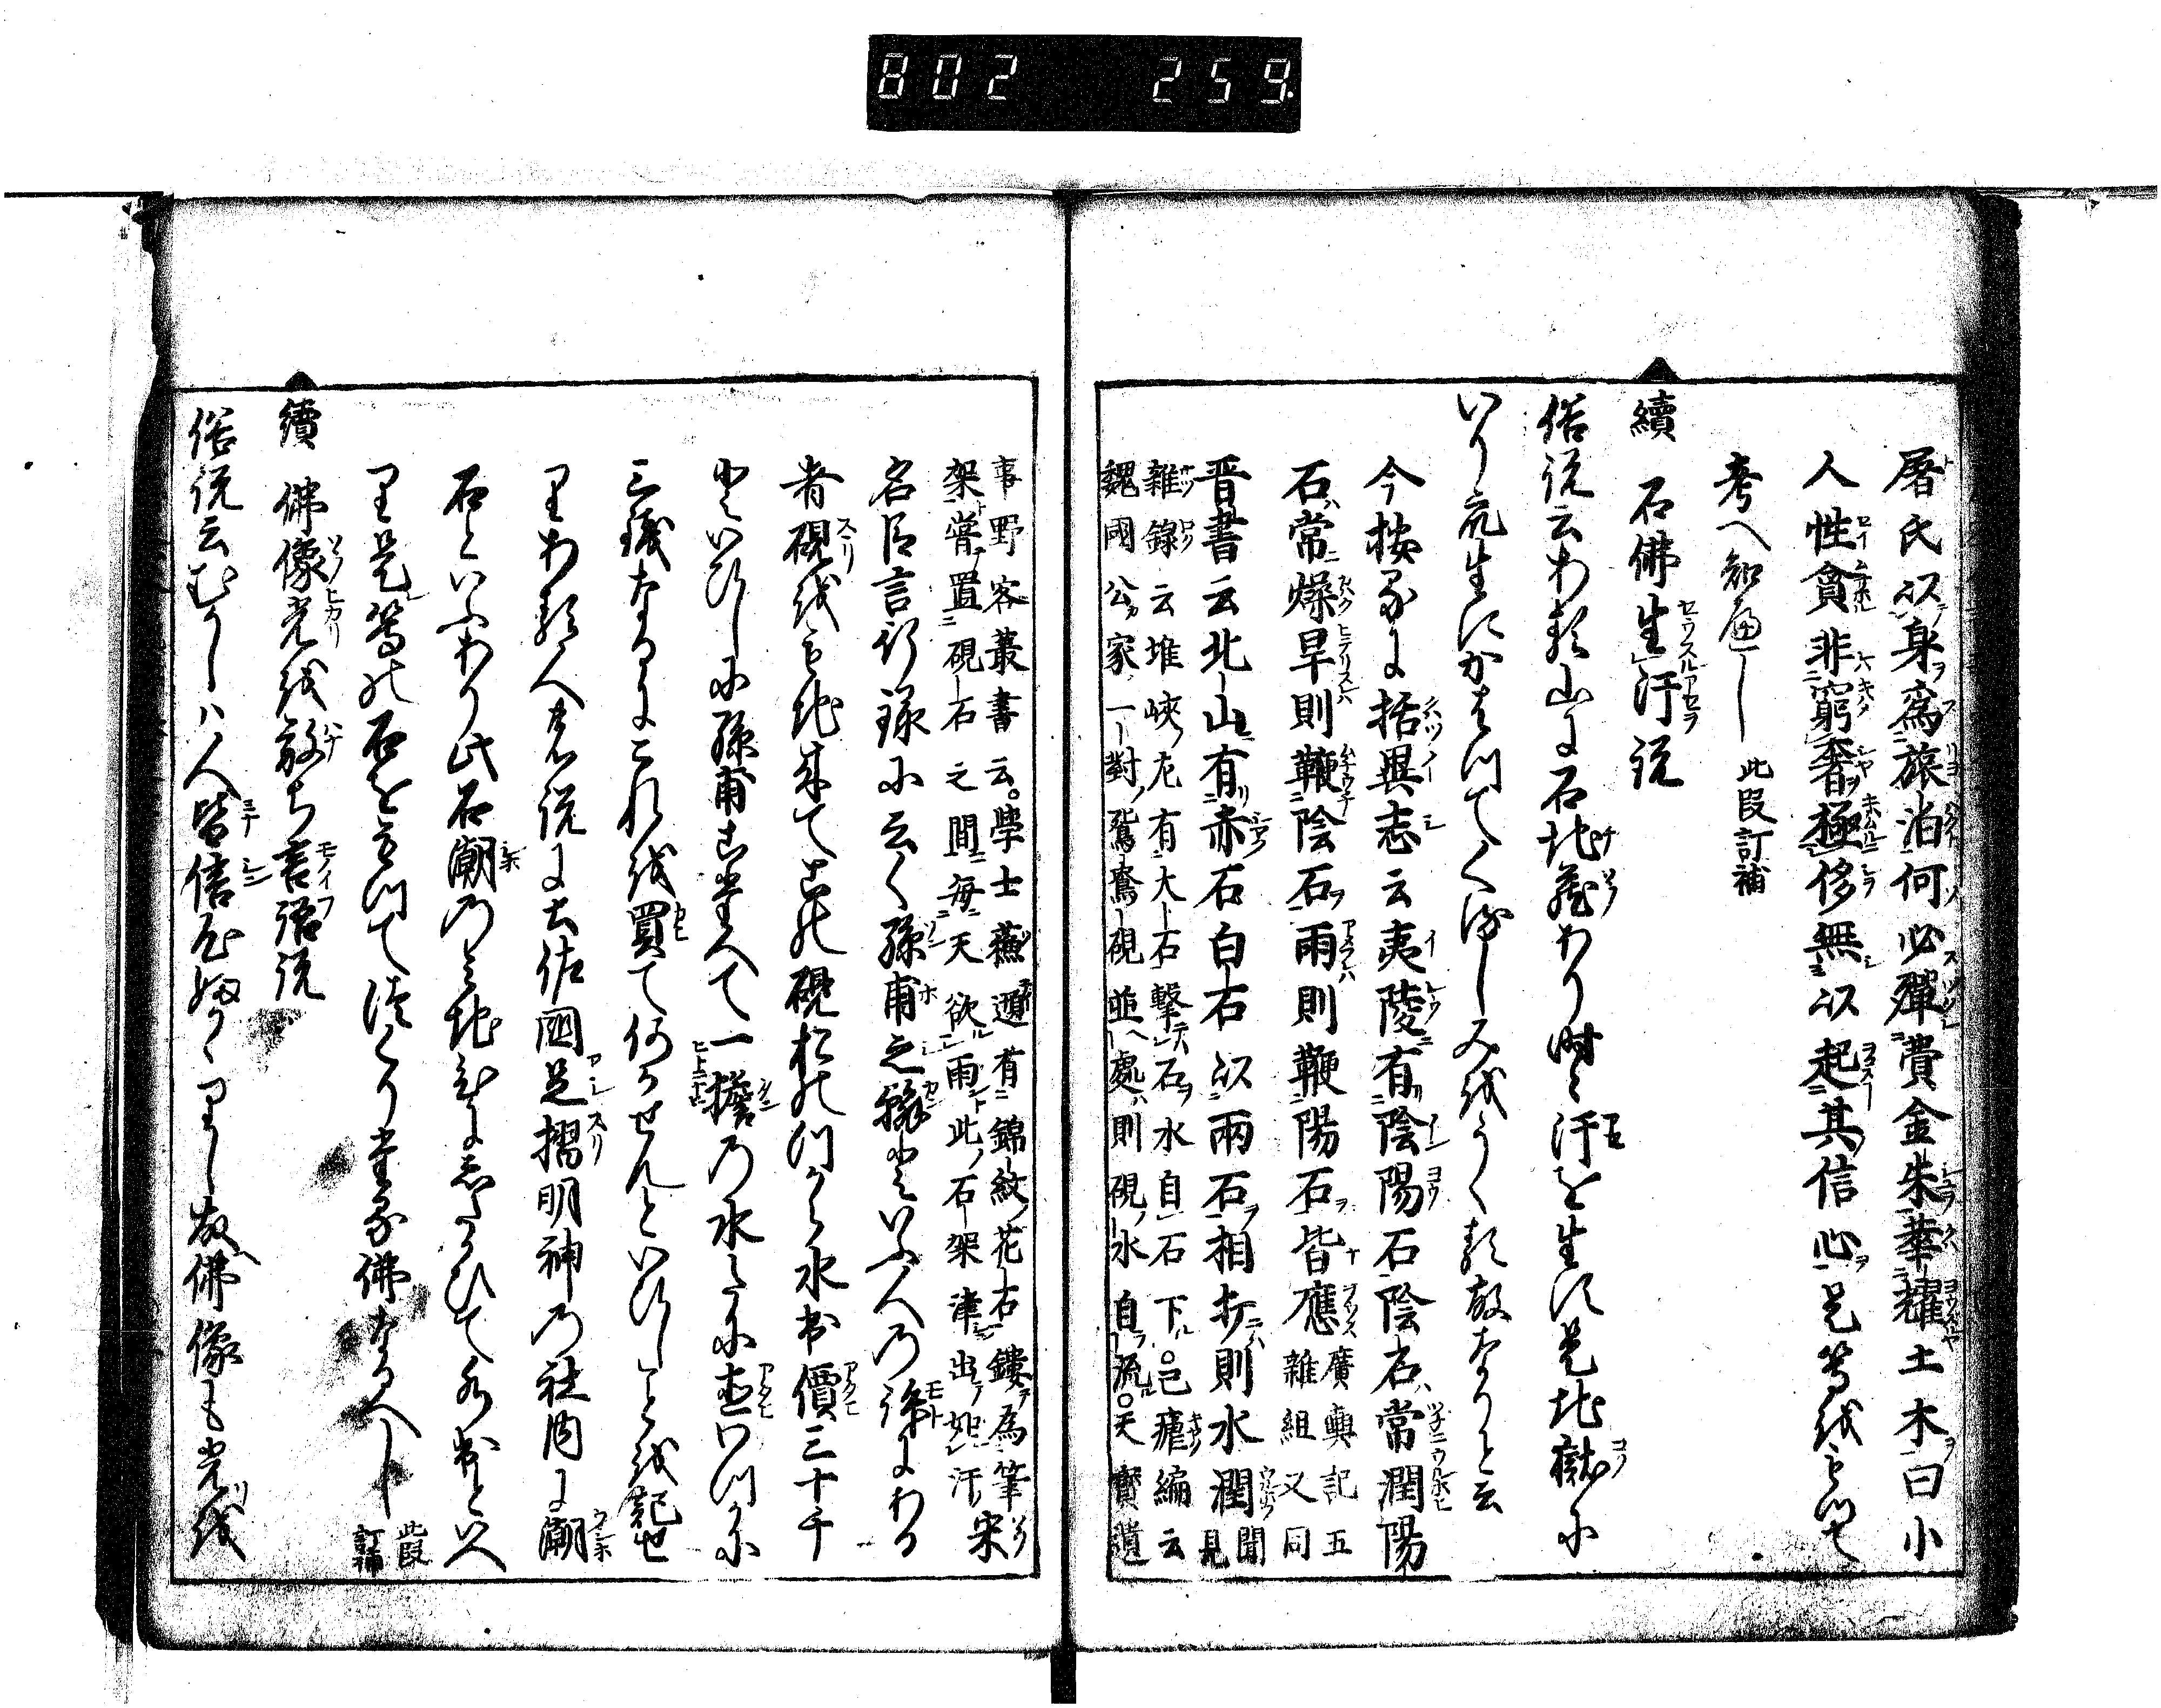 802 259.
屠氏以身爲旅泊何必殫費金朱華耀土木曰小
人性貪非窮奢極侈無以起其信心是等をもつて
考へ知べし 此段訂補
續 石佛生汗説
俗説云ある山に石地蔵あり時々汗を生ず是地獄に
いり衆生にかはつてくるしみをうくる故なりと云
今按るに括異志云夷陵有陰陽石陰石常潤陽
石常燥旱則鞭陰石雨則鞭陽石皆應 廣輿記五雜組又同
晋書云北山有赤石白石以兩石相打則水潤 聞見
雜錄云堆峽左有大石撃石水自石下 已瘧編云
魏國公家一對鵞硯並處則硯水自流 天寳遺
事野客叢書云學士蘓頲有錦紋花石鏤爲筆
架嘗置硯石之間毎天欲雨此石架津出如汗 宋
名臣言行録に云く孫甫之翰といふ人の許にある
者硯をもち来てこの硯石のつから水出價三十千
といひしに孫甫こたへて一擔の水こゝに直いつかに
三錢なるにこれを買て何かせんといひしことを記せ
りある人の説に土佐國足摺明神の社内に潮
石といふあり此石潮のみちひにしたかひて水出といへ
り是等の石をもつて造くりたる佛なるべし 此段訂補
續 佛像光を放ち言語説
俗説云むかしハ人皆信仰ふかゝりし故佛像も光を